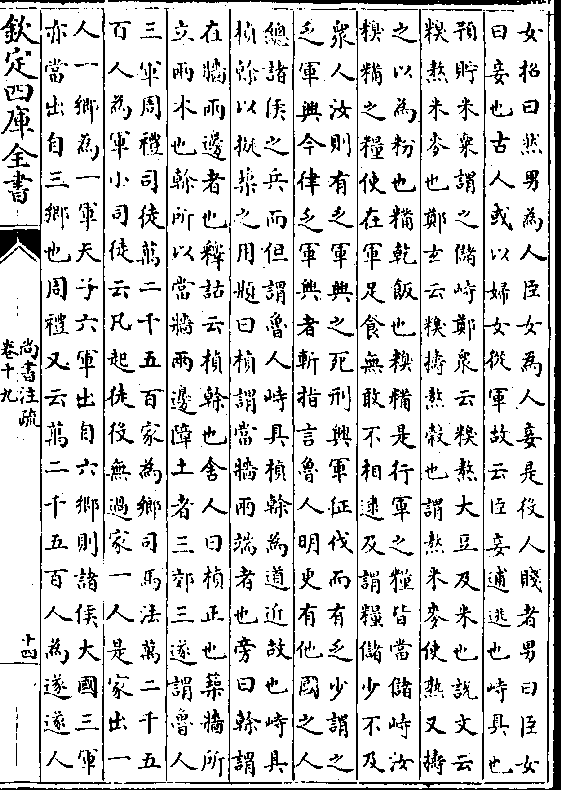 女招曰然男為人臣女為人妾是役人賤者男曰臣女
曰妾也古人或以婦女從軍故云臣妾逋逃也峙具也
預貯米粟謂之儲峙鄭衆云糗熬大豆及米也說文云
糗熬米麥也鄭玄云糗擣熬穀也謂熬米麥使熟又擣
之以為粉也糒乾飯也糗糒是行軍之糧皆當儲峙汝
糗糒之糧使在軍足食無敢不相逮及謂糧儲少不及
衆人汝則有乏軍興之死刑興軍征伐而有乏少謂之
乏軍興今律乏軍興者斬指言魯人明更有他國之人
總諸侯之兵而但謂魯人峙具楨幹為道近故也峙具
楨幹以擬築之用題曰楨謂當牆兩端者也旁曰幹謂
在牆兩邊者也釋詁云楨幹也舍人曰楨正也築牆所
立兩木也幹所以當牆兩邊障土者三郊三遂謂魯人
三軍周禮司徒萬二千五百家為鄉司馬法萬二千五
百人為軍小司徒云凡起徒役無過家一人是家出一
人一鄉為一軍天子六軍出自六鄉則諸侯大國三軍
亦當出自三鄉也周禮又云萬二千五百人為遂遂人
欽定四庫全書
尚書注疏
卷十九
十四